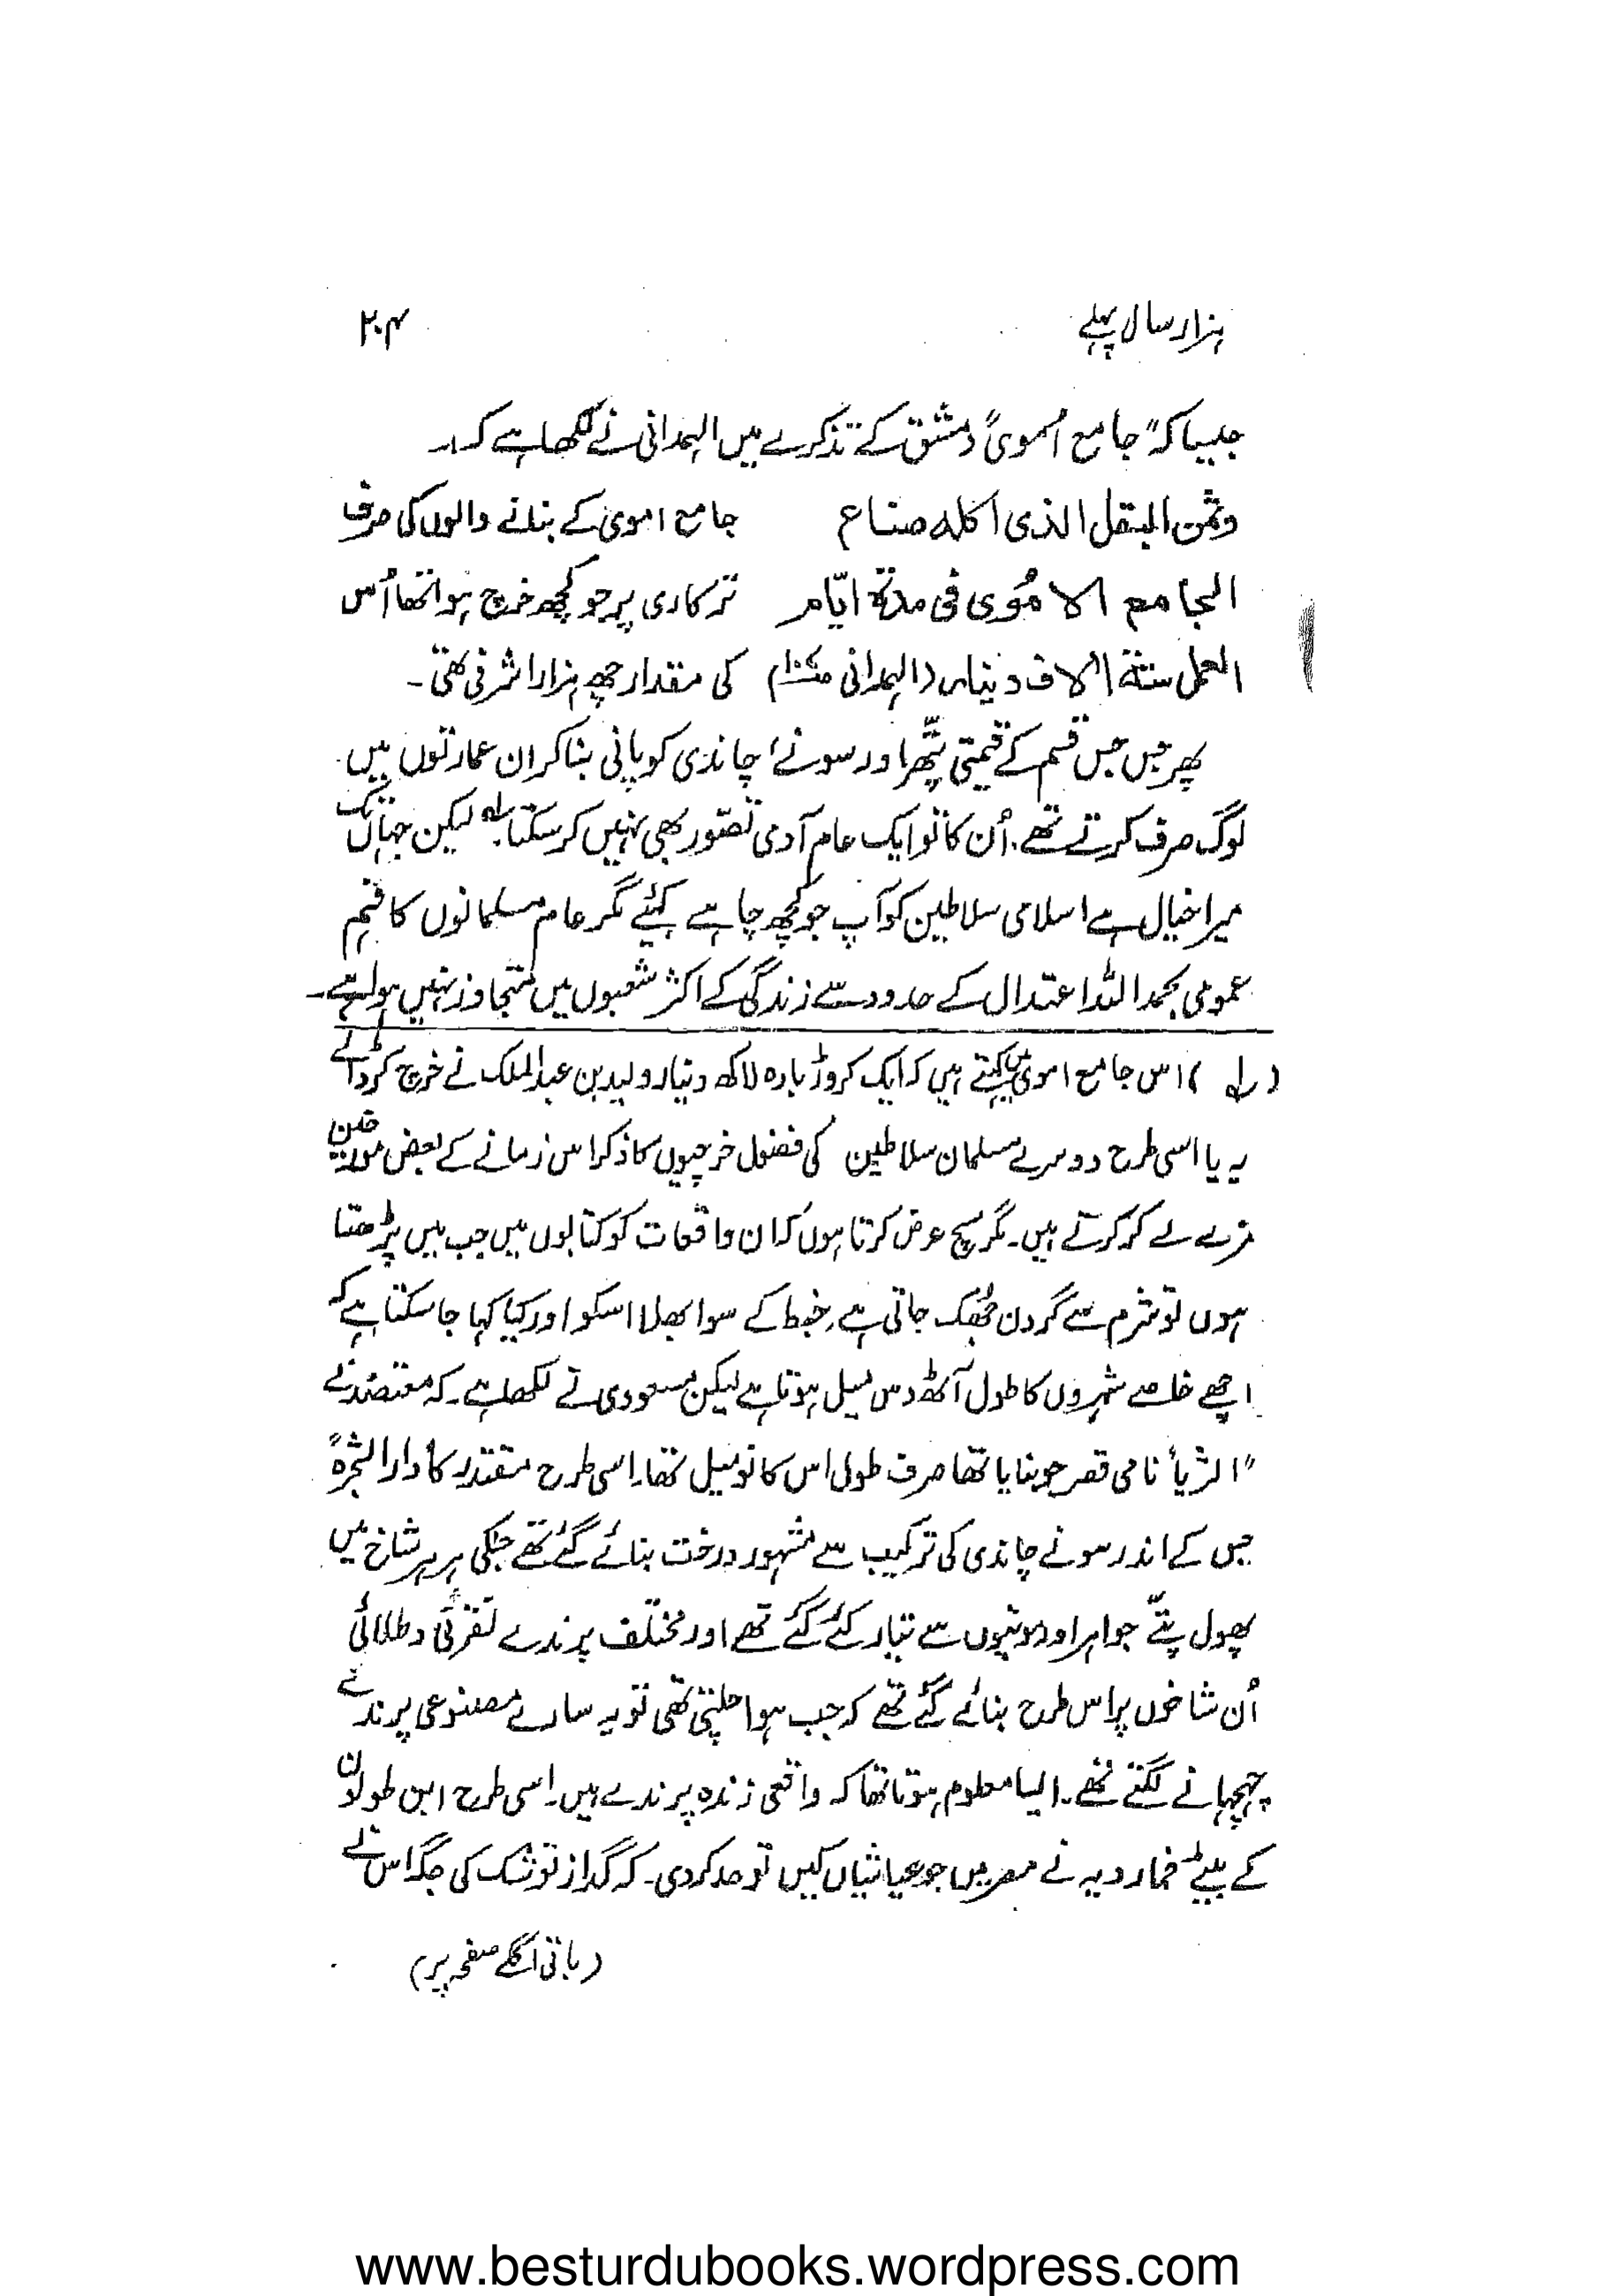 ہزار سال پہلے
۲۰۴
جیسا کہ "جامع اموی" دمشق کے تذکرے میں الہمدانی نے لکھا ہے کہ :۔
وثمن البقل الذی اکله صناع
الجامع الاموی فی مدة ایّام
العمل ستة الاف دینار (الہمدانی
جامع اموی کے بنانے والوں کی صرف
ترکاری پر جو کچھ خرچ ہوا تھا اُس
کی مقدار چھ ہزار اشرفی تھی ۔
پھر جس جس قسم کے قیمتی پتھر اور سونے، چاندی کو پانی بنا کر ان عمارتوں میں
لوگ صرف کرتے تھے، اُن کا تو ایک عام آدمی تصوّر بھی نہیں کر سکتا۔ لہ لیکن جہاں تک
میرا خیال ہے اسلامی سلاطین کو آپ جو کچھ چاہے کہئے مگر عام مسلمانوں کا فہم
عمومی بحمد اللہ اعتدال کے حدود سے زندگی کے اکثر شعبوں میں متجاوز نہیں ہوا ہے۔
(لہ) اس جامع اموی میں کہتے ہیں کہ ایک کروڑ بارہ لاکھ دینار ولید بن عبدالملک نے خرچ کر ڈالے
یہ یا اسی طرح دوسرے مسلمان سلاطین کی فضول خرچیوں کا ذکر اس زمانے کے بعض مورخین
مزے لے کر کرتے ہیں۔ مگر سچ عرض کرتا ہوں کہ ان واقعات کو کتابوں میں جب میں پڑھتا
ہوں تو شرم سے گردن جُھک جاتی ہے، خبط کے سوا بھلا اسکو اور کیا کہا جا سکتا ہے کہ
اچھے خاصے شہروں کا طول آٹھ دس میل ہوتا ہے لیکن مسعودی نے لکھا ہے۔ کہ معتضد نے
"الثریا" نامی قصر جو بنایا تھا صرف طول اس کا نو میل تھا۔ اسی طرح مقتدر کا "دار الشجرہ"
جس کے اندر سونے چاندی کی ترکیب سے مشہور درخت بنائے گئے تھے جنکی ہر ہر شاخ میں
پھول پتّے جواہر اور موتیوں سے تیار کئے گئے تھے اور مختلف پرندے نقرئی و طلائی
اُن شاخوں پر اس طرح بنائے گئے تھے کہ جب ہوا چلتی تھی تو یہ سارے مصنوعی پرندے
چہچہانے لگتے تھے۔ ایسا معلوم ہوتا تھا کہ واقعی زندہ پرندے ہیں۔ اسی طرح ابن طولون
کے بیٹے خمارویہ نے مصر میں جو عیاشیاں کیں تو حد کر دی۔ کہ گداز توشک کی جگہ اس نے
(باقی اگلے صفحہ پر)
www.besturdubooks.wordpress.com